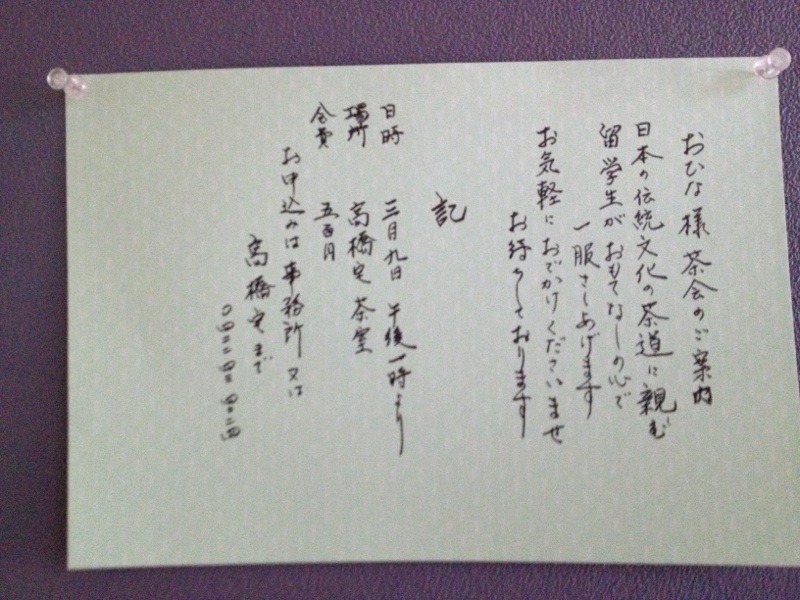 おひな様茶会のご案内
日本の伝統文化の茶道に親む
留学生がおもてなしの心で
一服さしあげます
お気軽におでかけくださいませ
お待ちしております
記
日時 三月九日 午後一時より
場所 高橋宅茶室
会費 五百円
お申込みは事務所又は
高橋宅まで